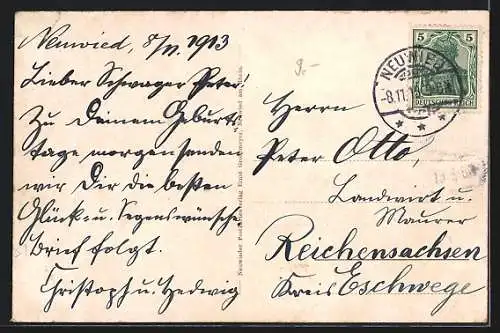 Neuwied, 8/11. 1913
Lieber Schwager Peter
Zu Deinem Geburts
tage morgen senden
wir Dir die besten
Glück- u. Segenswünsche
Brief folgt.
Christoph u. Hedwig
Neuwieder Postkartenverlag Ernst
9.-
5 5
DEUTSCHES REICH
NEUWIED
-8.11.
Herrn
Peter Otto,
Landwirt u.
Maurer
Reichensachsen
Kreis Eschwege